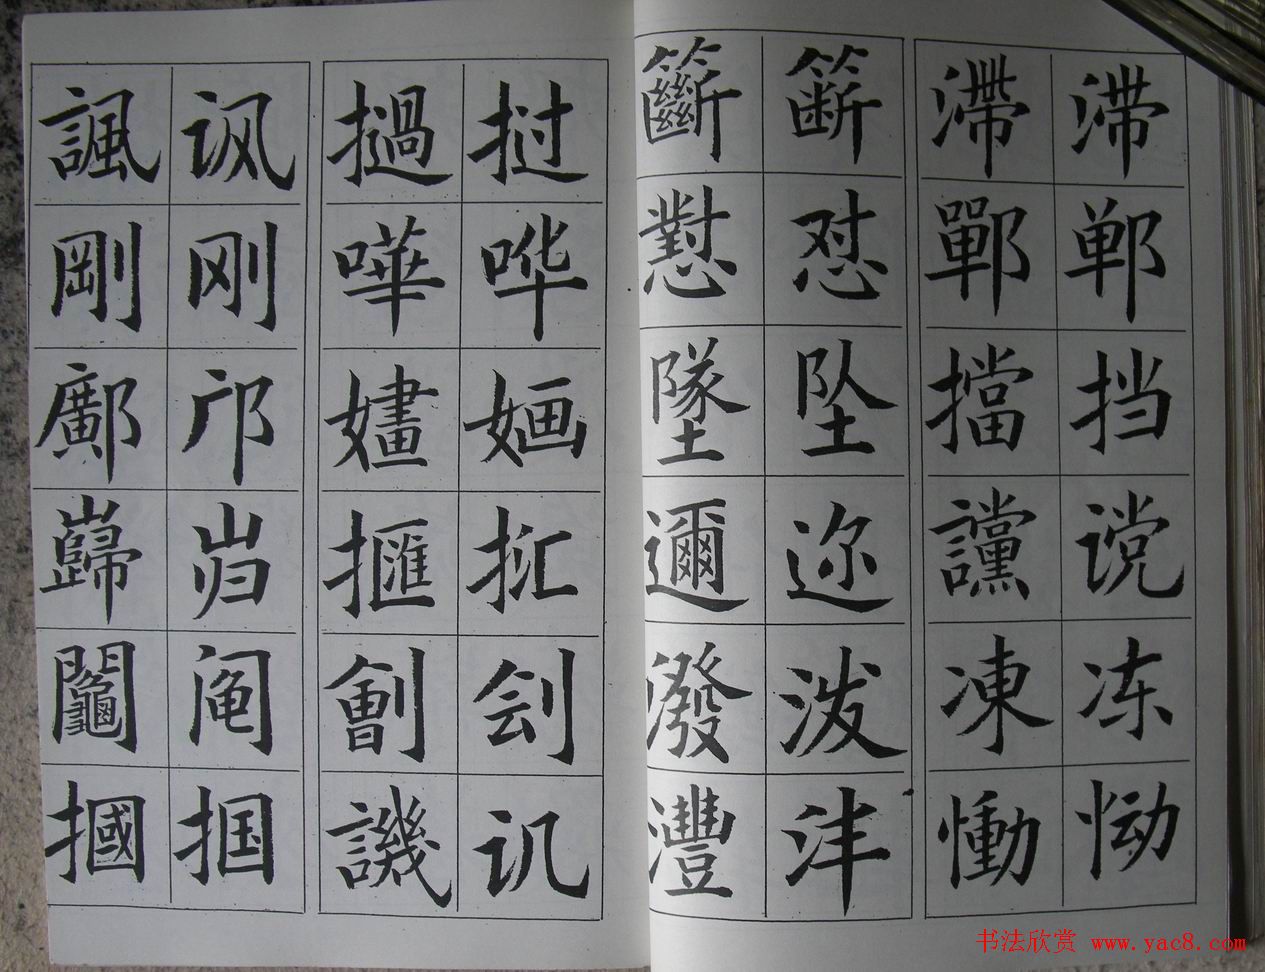 諷 讽
剛 刚
鄺 邝
巋 岿
鬮 阄
摑 掴
撾 挝
嘩 哗
嫿 婳
擓 㧟
劊 刽
譏 讥
籪 簖
懟 怼
墜 坠
邇 迩
潑 泼
灃 沣
滯 滞
鄲 郸
擋 挡
讜 谠
凍 冻
慟 恸
书法欣赏 www.yac8.com